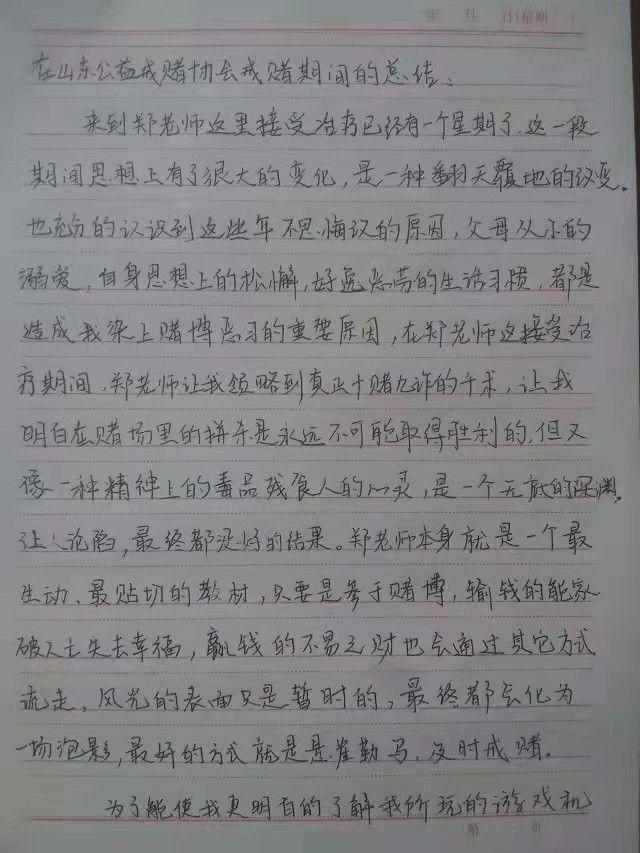 年 月 日(星期 )
在山东公益戒赌协会戒赌期间的总结:
来到郑老师这里接受治疗已经有一个星期了,这一段
期间思想上有了很大的变化,是一种翻天覆地的改变。
也充分的认识到这些年不思悔改的原因,父母从小的
溺爱,自身思想上的松懈,好逸恶劳的生活习惯,都是
造成我染上赌博恶习的重要原因,在郑老师这接受治
疗期间,郑老师让我领略到真正十赌九诈的千术,让我
明白在赌场里的拼杀是永远不可能取得胜利的,但又
像一种精神上的毒品残食人的心灵,是一个无底的深渊,
让人沦陷,最终都没好的结果。郑老师本身就是一个最
生动、最贴切的教材,只要是参于赌博,输钱的能家
破人亡失去幸福,赢钱的不易之财也会通过其它方式
流走,风光的表面只是暂时的,最终都会化为
一场泡影,最好的方式就是悬崖勒马,及时戒赌。
为了能使我更明白的了解我所玩的游戏机
第 页